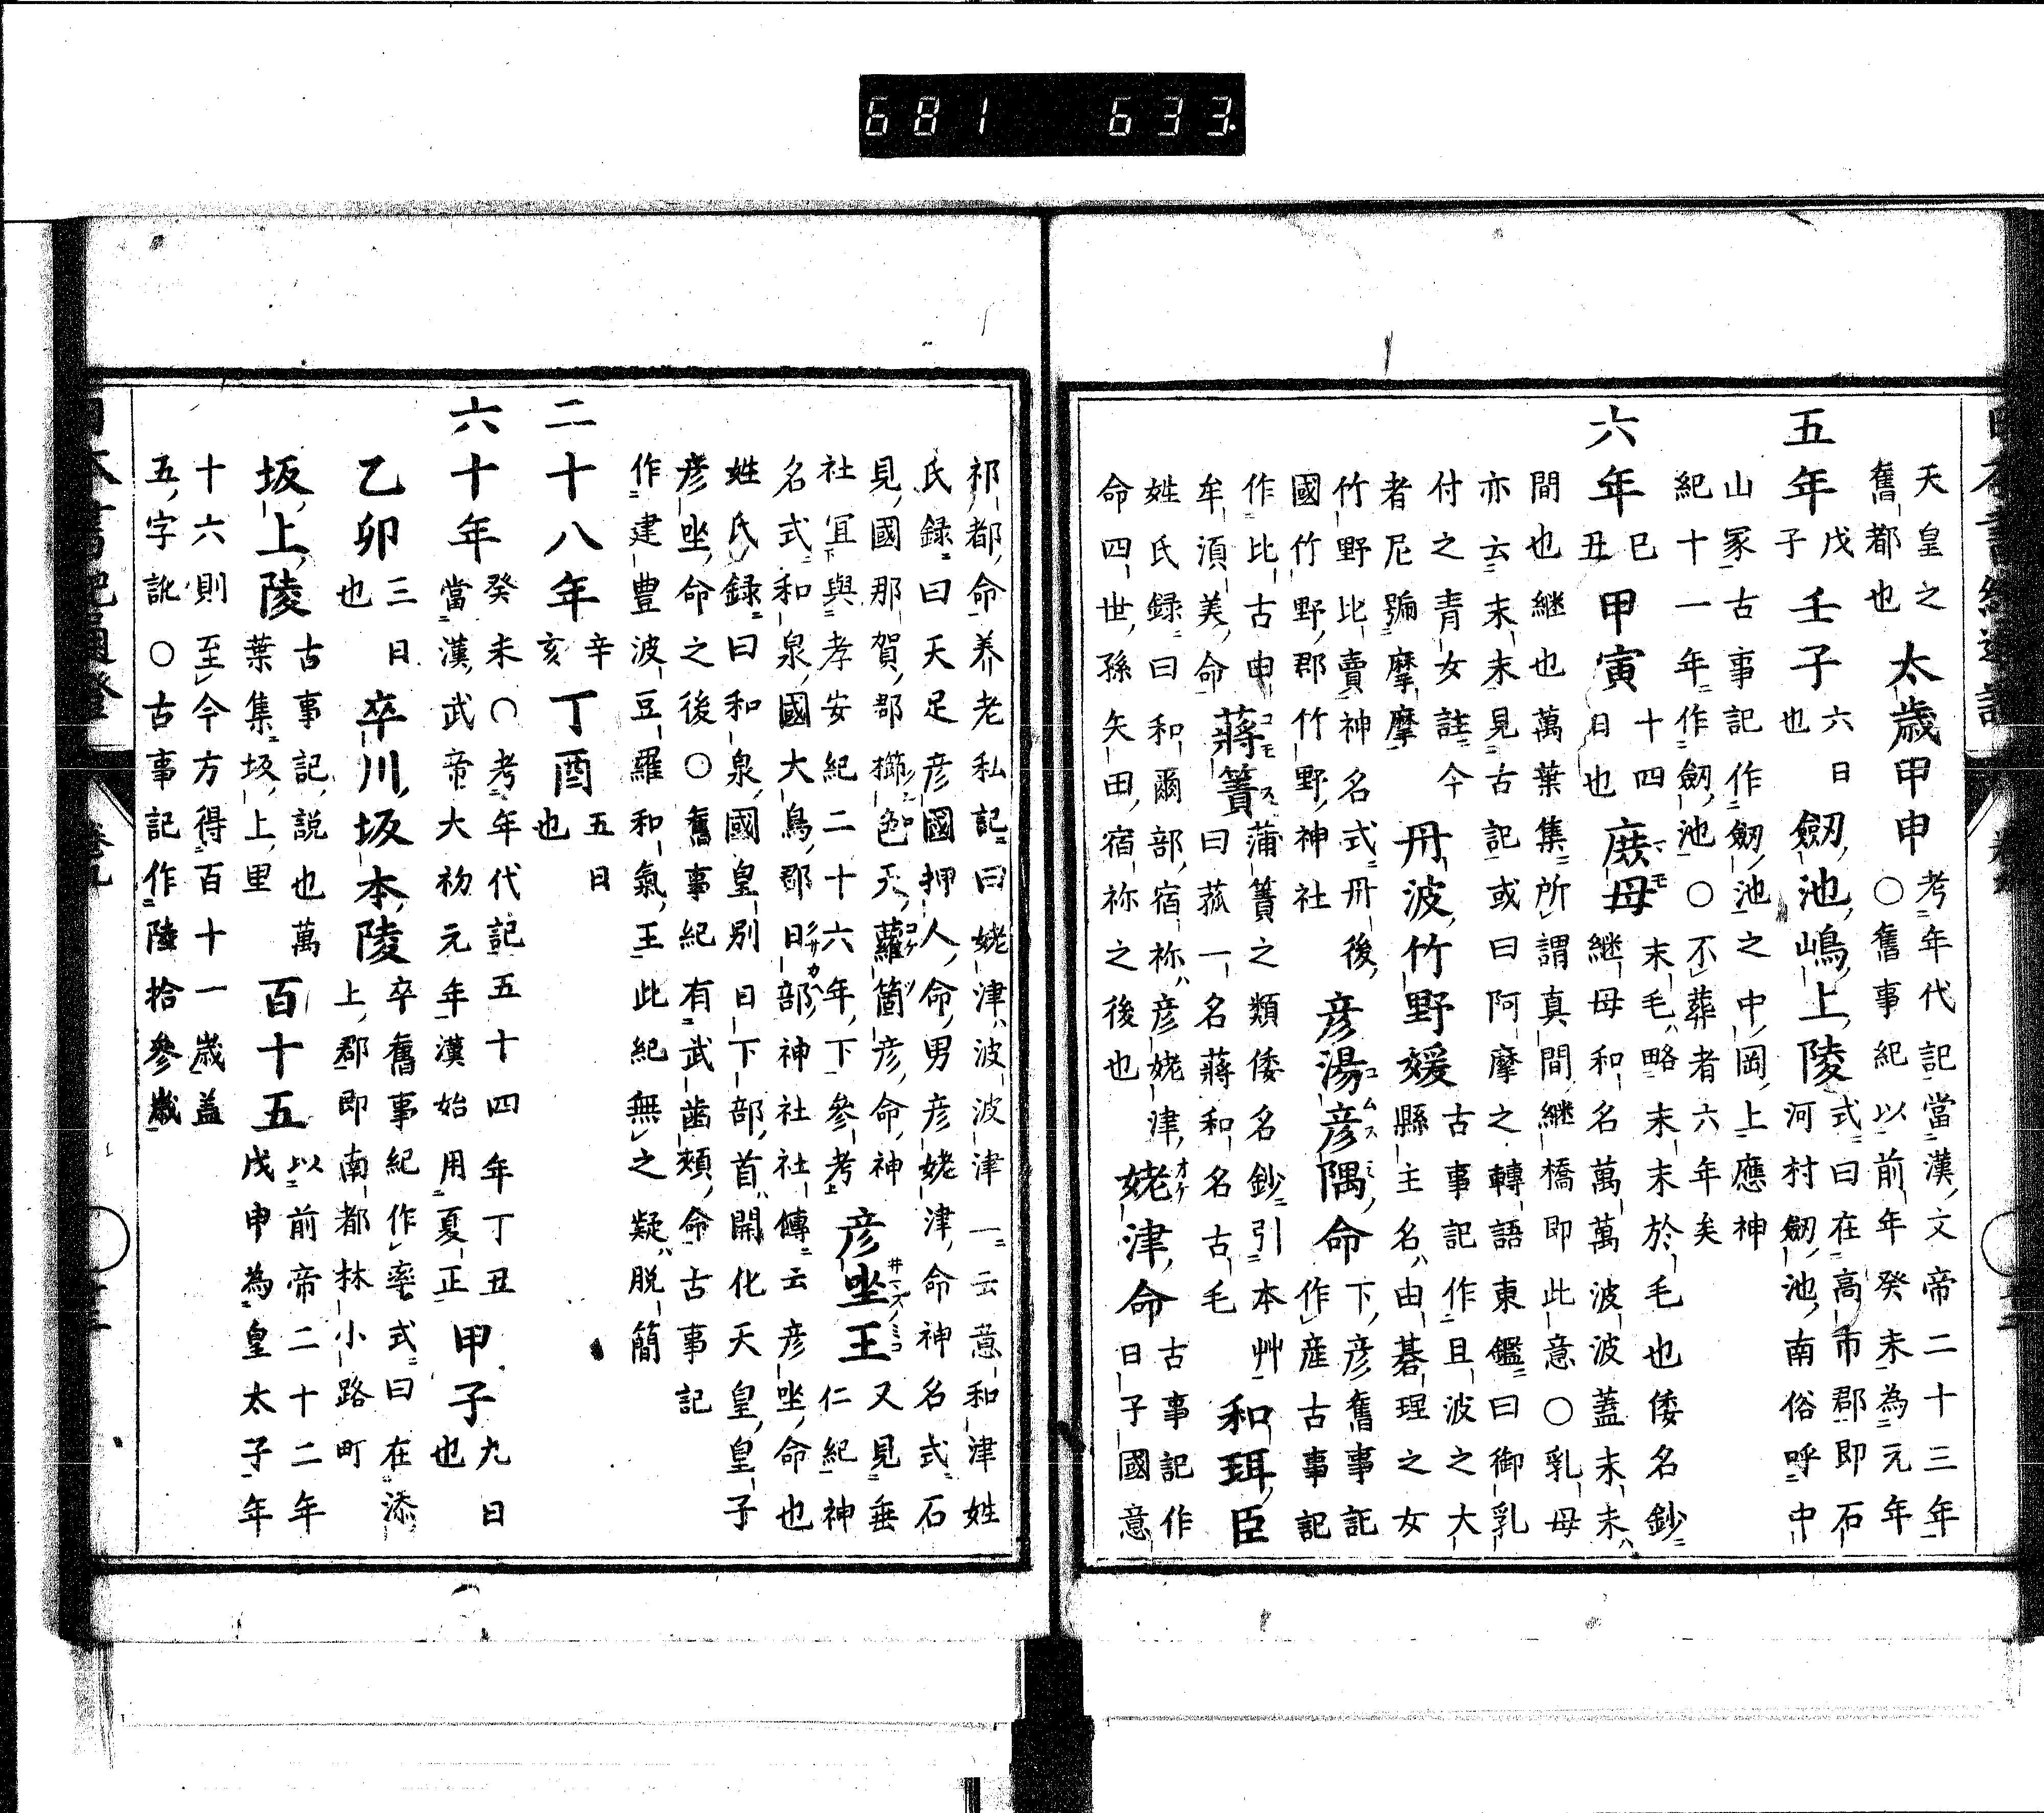 681 633
天皇之
舊都也
太歳甲申
考年代記當漢文帝二十三年
○舊事紀以前年癸未為元年
五年
戊
子
壬子
六日
也
劔池嶋上陵
式曰在高市郡即石
河村劔池南俗呼中
山冢古事記作劔池之中岡上應神
紀十一年作劔池○不葬者六年矣
六年
已
丑
甲寅
十四
日也
庶母
マヽ
モ
末毛略末末於毛也倭名鈔
継母和名萬萬波波蓋末末
間也継也萬葉集所謂真間継橋即此意○乳母
亦云末末見古記或曰阿摩之轉語東鑑曰御乳
付之青女註今
者尼號摩摩
丹波竹野媛
古事記作旦波之大
縣主名由碁理之女
竹野比賣神名式丹後
國竹野郡竹野神社
彦湯彦隅命
コムス
ミ
下彦舊事記
作産古事記
作比古由
コモス
牟須美命
蔣簀
蒲簀之類倭名鈔引本艸
曰菰一名蔣和名古毛
和珥臣
姓氏録曰和爾部宿祢彦姥津
命四世孫矢田宿祢之後也
姥津命
オケ
古事記作
日子國意
祁都命養老私記曰姥津波波津一云意和津姓
氏録曰天足彦國押人命男彦姥津命神名式石
見國那賀郡櫛色天蘿箇彦命神
社冝與孝安紀二十六年下參考
彦坐王
井マス
ミコ
又見垂
仁紀神
名式和泉國大鳥郡日部神社社傳云彦坐命也
姓氏録曰和泉國皇別日下部首開化天皇皇子
彦坐命之後○舊事紀有武齒頰命古事記
作建豊波豆羅和氣王此紀無之疑脱簡
二十八年
辛
亥
丁酉
五日
也
六十年
癸未○考年代記五十四年丁丑
當漢武帝大初元年漢始用夏正
甲子
九日
也
乙卯
三日
也
卒川坂本陵
卒舊事紀作率式曰在添
上郡即南都林小路町
坂上陵
古事記説也萬
葉集坂上里
百十五
以前帝二十二年
戊申為皇太子年
十六則至今方得百十一歳蓋
五字訛○古事記作陸拾參歳